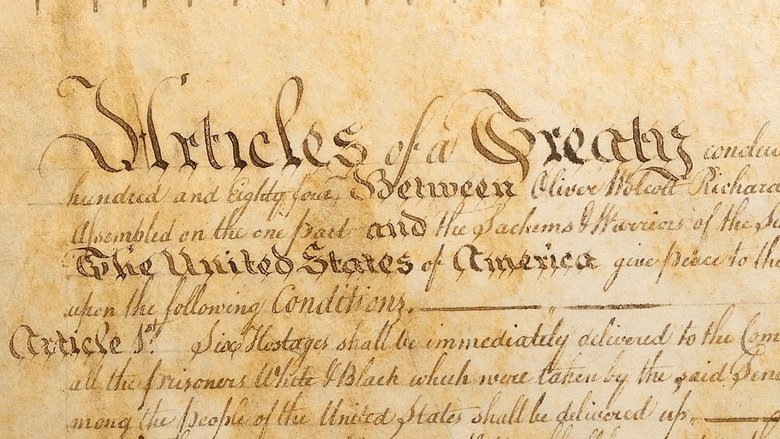 Articles of a Treaty conclu
hundred and Eighty four, Between Oliver Wolcott Richard
Assembled on the one part and the Sachems & Warriors of the S
The United States of America give peace to the
upon the following Conditions.
Article 1st. Six Hostages shall be immediately delivered to the Com
all the prisoners White & Black which were taken by the said Sene
mong the people of the United States shall be delivered up.